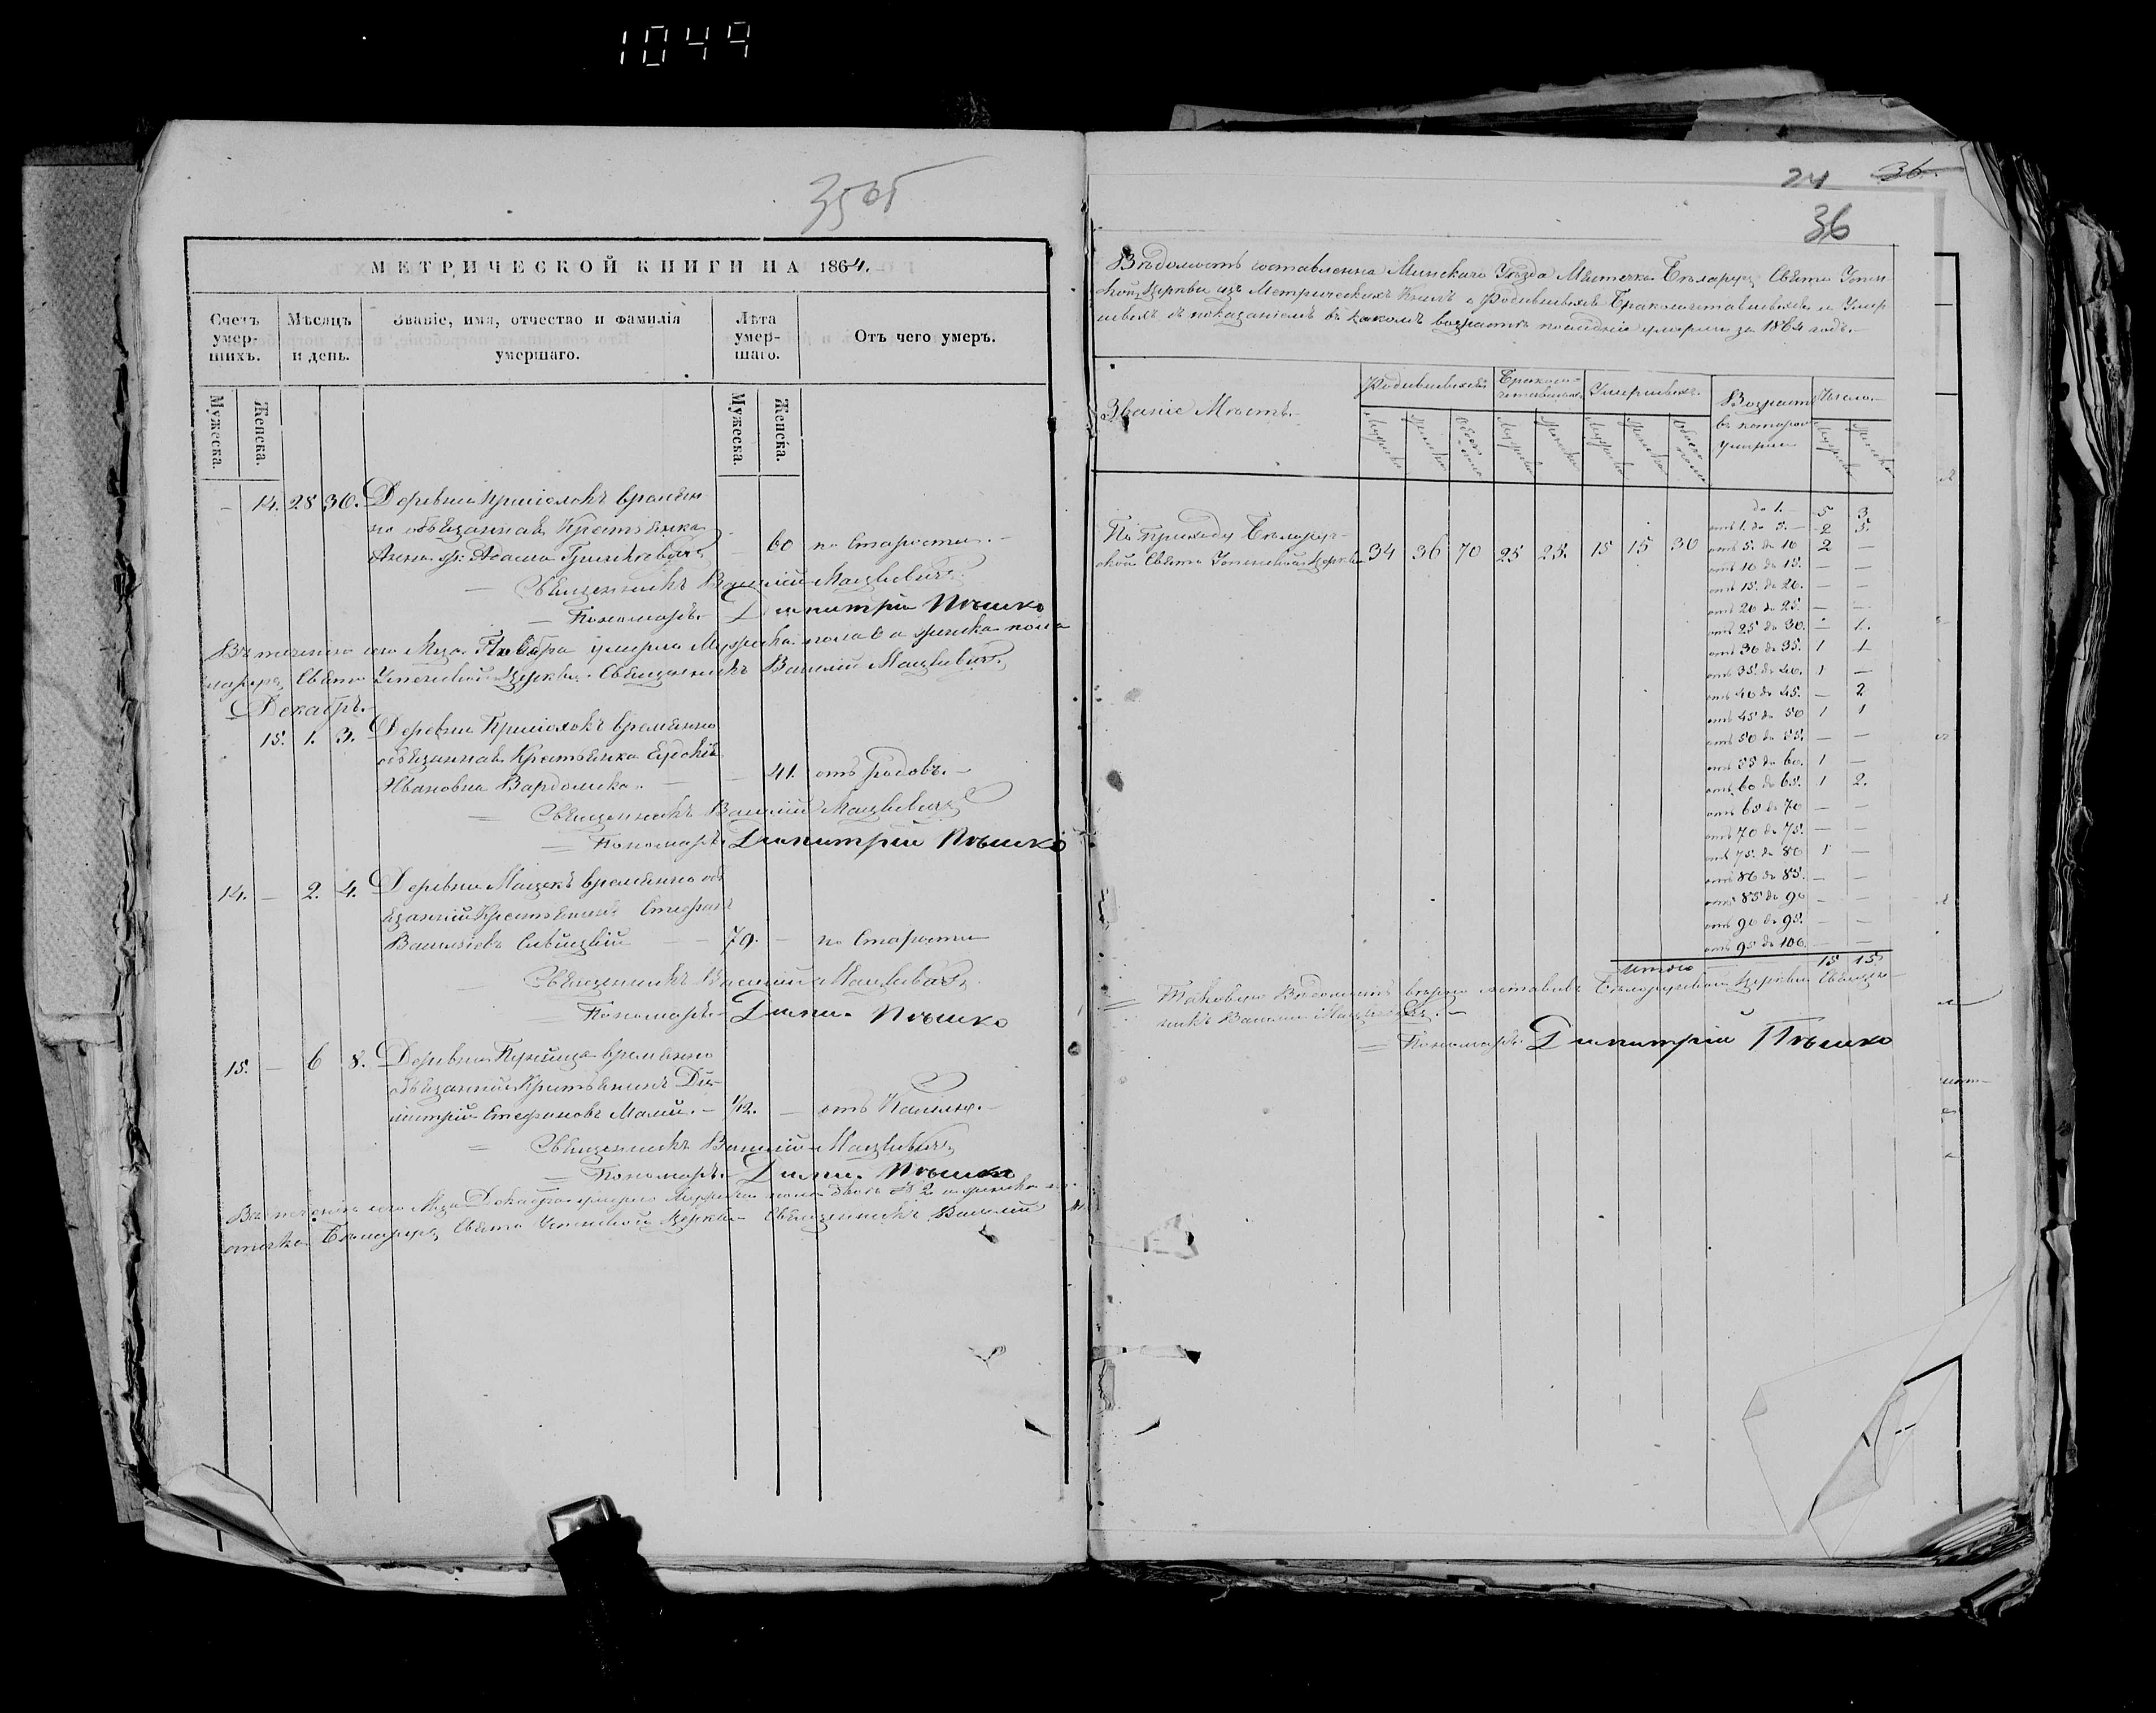 1049
35об
МЕТРИЧЕСКОЙ КНИГИ НА 1864.
Счетъ умер-шихъ.
Мѣсяцъ и день.
Званіе, имя, отчество и фамилія умершаго.
Лѣта умер-шаго.
Отъ чего умеръ.
Мужеска. Женска. Мужеска. Женска.
– 14. 28 30. Деревни временн
но обязанная Крестьянка
60 по Старости.–
Священникъ Василій
Пономарь Димитрій Пѣшко
Въ теченіи сего Мца Ноября умерло Мужеска пола 6 а женска пола
Свято Успенской Церкви Священникъ Василій
Декабрь.
15. 1. 3. Деревни временно
обязанная Крестьянка
Ивановна – 41. отъ Родовъ.–
Священникъ Василій
Пономарь Димитрій Пѣшко
14. – 2. 4. Деревни временно об
язанный Крестьянинъ Стефанъ
Васильевъ 79. – по Старости
Священникъ Василій
Пономарь Дими. Пѣшко
15. – 6 8. Деревни временно
обязанный Крестьянинъ Ди-
митрій Стефановъ Малый.– 1/12. – отъ Кашлю.–
Священникъ Василій
Пономарь Дими. Пѣшко
Въ теченіи сего Мца Декабря умерло Мужеска пола двое 2 а женска
Свято Успенской Церкви Священникъ Василій
24 36.
36
Вѣдомость составленна Минскаго Уѣзда Мѣстечка Бѣларучъ Свято Успен
ской Церкви изъ Метрическихъ Книгъ о Родившихся Бракосочетавшихся и Умер
шихъ съ показаніемъ въ какомъ возрастѣ умерли за 1864 годъ.
Званіе Мѣстъ.–
Родившихся
Бракосо-четавшихся
Умершихъ.
Возрастъ въ которомъ умерли
Число.–
Мужеска Женска Обоего пола Мужеска Женска Мужеска Женска Обоего пола Мужеска Женска
По Приходу Бѣларуч-
ской Свято Успенской Церкви 34 36 70 25 25. 15 15 30
до 1.– 5 3
отъ 1. до 5.– 2 5.
отъ 5. до 10 2 –
отъ 10 до 15. – –
отъ 15. до 20. – –
отъ 20 до 25. – –
отъ 25 до 30. – 1.
отъ 30 до 35. 1 1
отъ 35. до 40. 1 –
отъ 40 до 45. – 2
отъ 45 до 50 1 1
отъ 50 до 55. – –
отъ 55 до 60. 1 –
отъ 60 до 65. 1 2.
отъ 65 до 70 – –
отъ 70 до 75. – –
отъ 75. до 80 1 –
отъ 80 до 85. – –
отъ 85 до 90 – –
отъ 90 до 95. – –
отъ 95 до 100. – –
Итого 15 15
Таковую Вѣдомость вѣрно составилъ Бѣларучской Церкви Священ
никъ Василій
Пономарь Димитрій Пѣшко